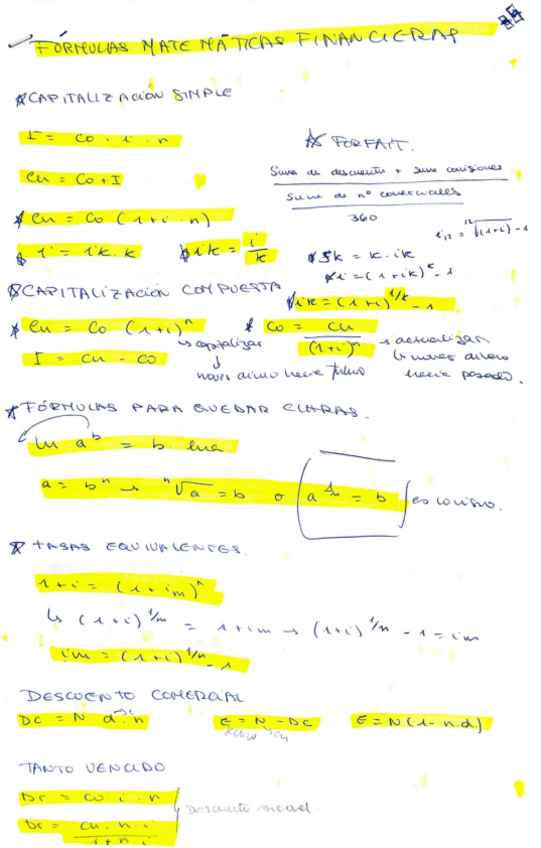 FÓRMULAS MATEMÁTICAS FINANCIERAS
CAPITALIZACIÓN SIMPLE
I = Co . i . n
Cn = Co + I
Cn = Co (1+i . n)
i = ik . k
ik = i/k
FORFAIT.
Suma de descuento + suma comisiones
Suma de nº comerciales
360
i12 = ¹²√(1+i) - 1
Jk = k . ik
i = (1+ik)^k - 1
CAPITALIZACIÓN COMPUESTA
ik = (1+i)^1/k - 1
Cn = Co (1+i)^n
↳ capitalizar
↓
mover dinero hacia futuro
I = Cn - Co
Co = Cn/(1+i)^n
→ actualizar
↳ mover dinero
hacia pasado.
FÓRMULAS PARA QUEDAR CLARAS.
ln a^b = b . lna
a = b^n → ⁿ√a = b o (a^1/n = b) es lo mismo.
TASAS EQUIVALENTES.
1+i = (1+im)^n
↳ (1+i)^1/n = 1+im → (1+i)^1/n - 1 = im
im = (1+i)^1/n - 1
DESCUENTO COMERCIAL
DC = N . d . n
E = N - DC
E = N (1 - n.d)
TANTO VENCIDO
Dr = Co . i . n
Dr = Cn . n . i/1 + n . i
Descuento racional.